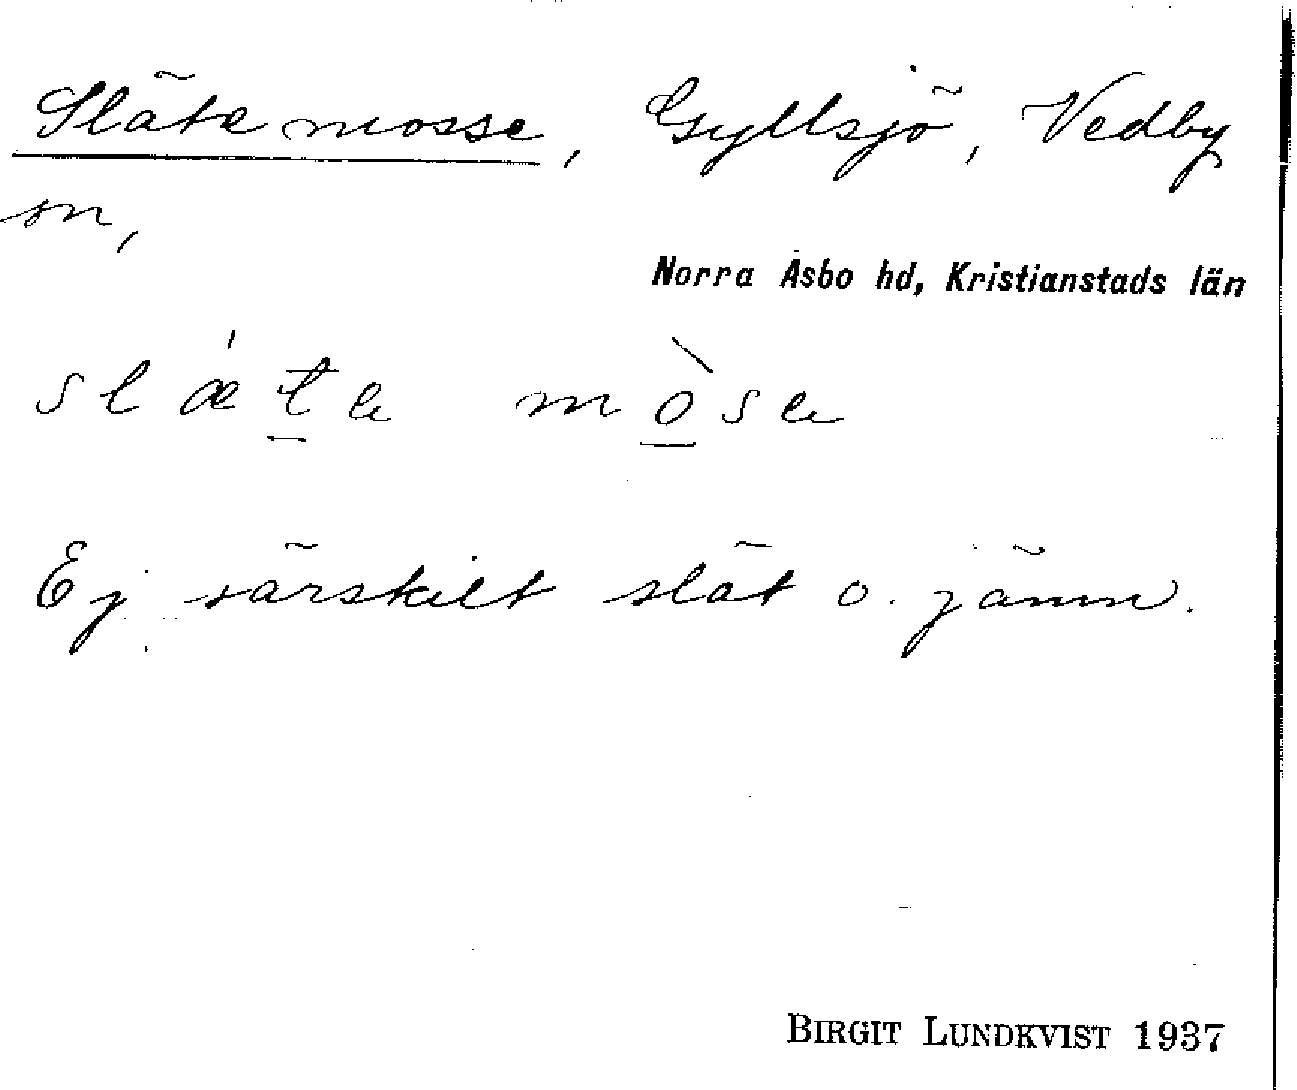 Släta mosse, Gyllsjö, Vedby
sn,
Norra Åsbo hd, Kristianstads län
slǽtа mòsа
Ej särskilt slät o. jämn.
BIRGIT LUNDKVIST 1937